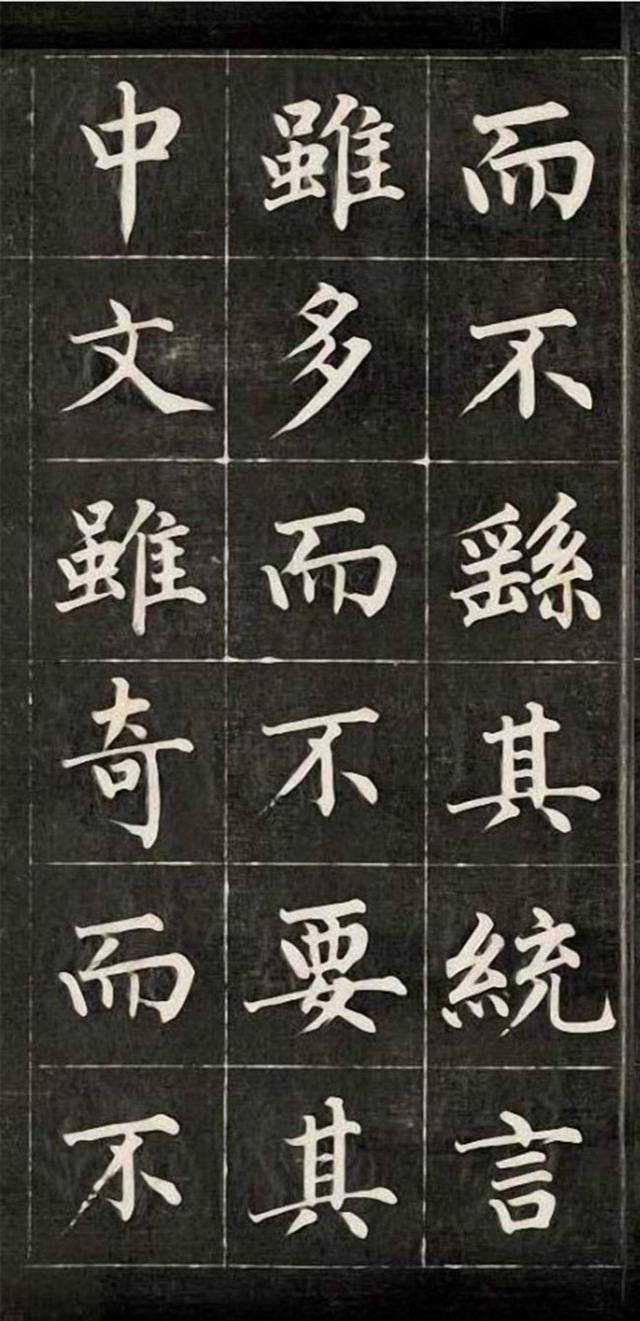 而不繇其統言
雖多而不要其
中文雖奇而不